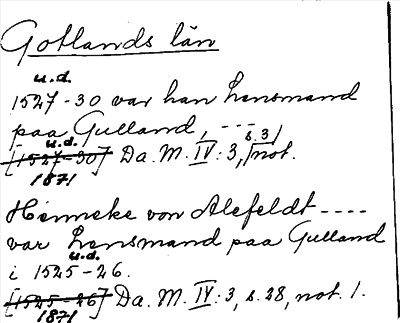 Gotlands län
u.d.
1527-30 var han Lensmand
paa Gulland, ---
u.d. s.31
[1527-30] Da. M. IV:3, not.
1871
Henneke von Alefeldt ----
var Lensmand paa Gulland
u.d.
i 1525-26.
[1525-26] Da. M. IV:3, s.28, not. 1.
1871